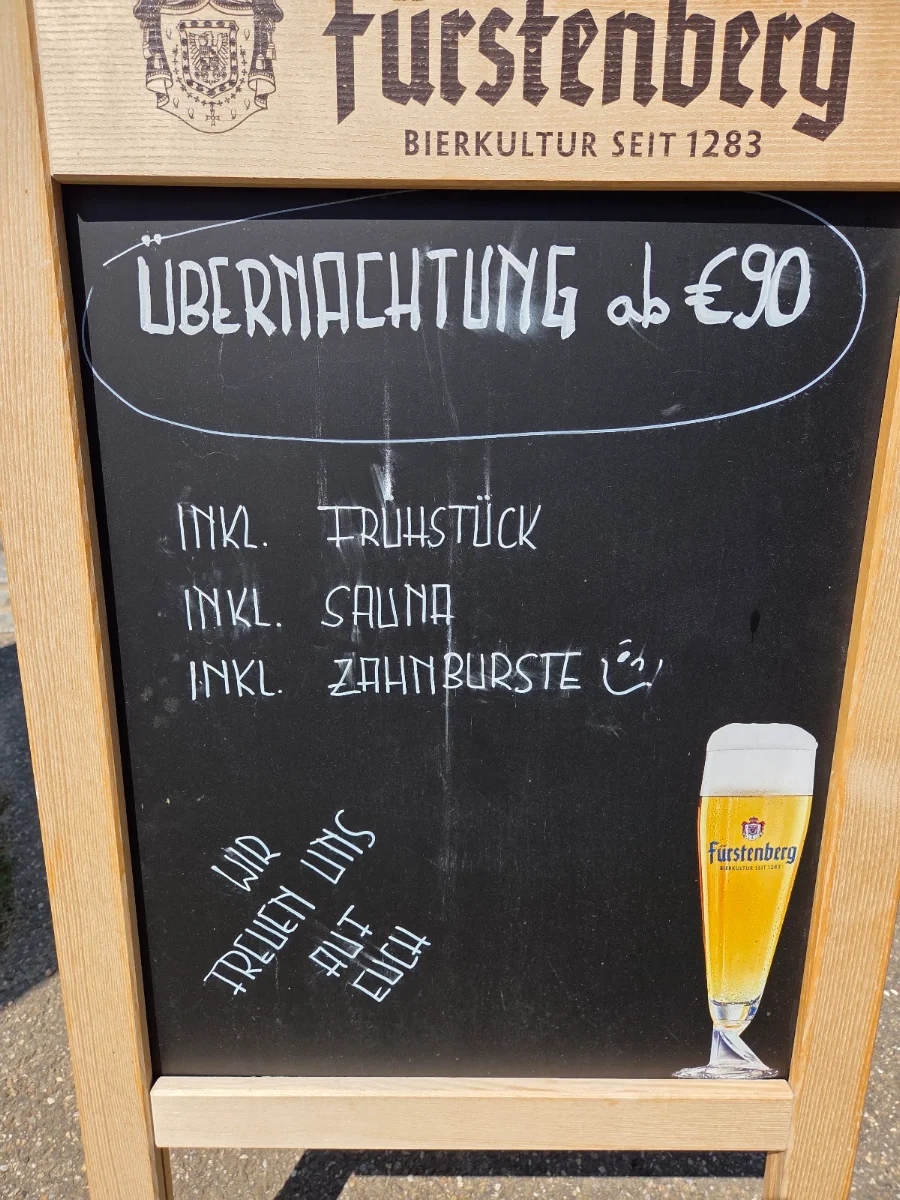 Fürstenberg
BIERKULTUR SEIT 1283
ÜBERNACHTUNG ab €90
INKL. FRÜHSTÜCK
INKL. SAUNA
INKL. ZAHNBURSTE
WIR
FREUEN UNS
AUF
EUCH
Fürstenberg
BIERKULTUR SEIT 1283